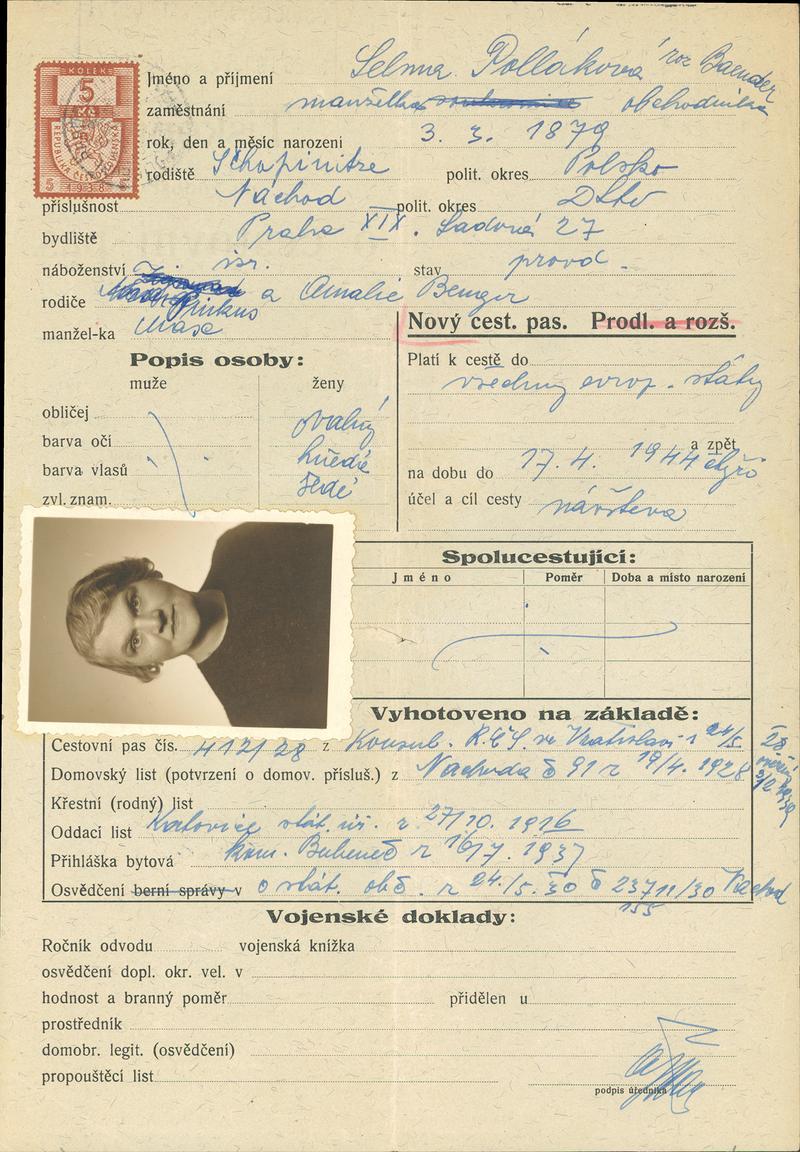 KOLEK
5
Kč
REPUBLIKA ČESKOSLOVENSKÁ
5 1938
Jméno a příjmení Selma Polláková roz Baender
zaměstnání manželka obchodníka
rok, den a měsíc narození 3. 3. 1879
rodiště Schopinitze polit. okres Polsko
příslušnost Náchod polit. okres Dtto
bydliště Praha XIX. Sadová 27
náboženství isr. stav provd.
rodiče Pinkus a Amalie
manžel-ka Max
Nový cest. pas. Prodl. a rozš.
Popis osoby:
muže ženy
obličej oválný
barva očí hnědé
barva vlasů šedé
zvl. znam.
Platí k cestě do
všechny evrop. státy
a zpět
na dobu do 17. 4. 1944
účel a cíl cesty návštěva
Spolucestující:
Jméno Poměr Doba a místo narození
Vyhotoveno na základě:
Cestovní pas čís. 412/28 z Konsul. R.Č.S. ve Vratislavi 24/5. 28
Domovský list (potvrzení o domov. přísluš.) z Náchoda č 91 z 19/4. 1928
Křestní (rodný) list
Oddací list Katovice stát. z 27/10. 1916
Přihláška bytová kom. Bubeneč z 16/7. 1937
Osvědčení berní správy v o stát. obč. z 24./5. 30 č 23711/30 Náchod
155
Vojenské doklady:
Ročník odvodu vojenská knížka
osvědčení dopl. okr. vel. v
hodnost a branný poměr přidělen u
prostředník
domobr. legit. (osvědčení)
propouštěcí list
podpis úředníka